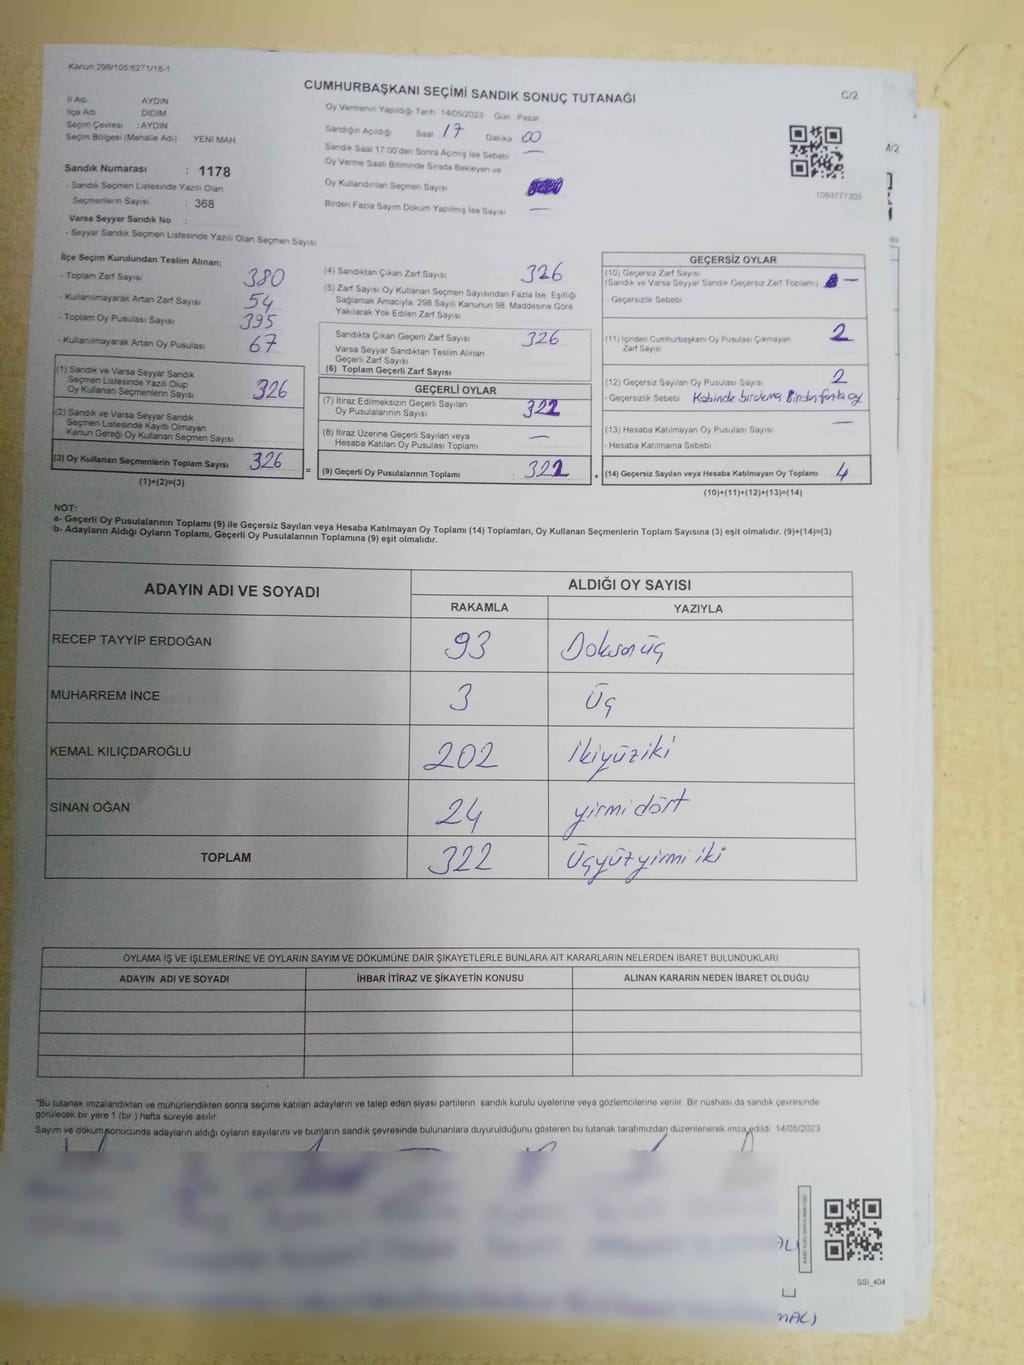 Kanun:298/105;6271/18-1
C/2
CUMHURBAŞKANI SEÇİMİ SANDIK SONUÇ TUTANAĞI
İl Adı : AYDIN
İlçe Adı : DİDİM
Seçim Çevresi : AYDIN
Seçim Bölgesi (Mahalle Adı) YENİ MAH
Sandık Numarası : 1178
- Sandık Seçmen Listesinde Yazılı Olan
Seçmenlerin Sayısı : 368
Varsa Seyyar Sandık No :
- Seyyar Sandık Seçmen Listesinde Yazılı Olan Seçmen Sayısı
Oy Vermenin Yapıldığı Tarih: 14/05/2023 Gün: Pazar
Sandığın Açıldığı Saat 17 Dakika 00
Sandık Saat 17:00'den Sonra Açımış İse Sebebi —
Oy Verme Saati Bitiminde Sırada Bekleyen ve
Oy Kullandırılan Seçmen Sayısı
Birden Fazla Sayım Döküm Yapılmış İse Sayısı —
1093777303
A/2
İlçe Seçim Kurulundan Teslim Alınan;
- Toplam Zarf Sayısı 380
- Kullanılmayarak Artan Zarf Sayısı 54
- Toplam Oy Pusulası Sayısı 395
- Kullanılmayarak Artan Oy Pusulası 67
(1) Sandık ve Varsa Seyyar Sandık
Seçmen Listesinde Yazılı Olup
Oy Kullanan Seçmenlerin Sayısı 326
(2) Sandık ve Varsa Seyyar Sandık
Seçmen Listesinde Kayıtlı Olmayan
Kanun Gereği Oy Kullanan Seçmen Sayısı
(3) Oy Kullanan Seçmenlerin Toplam Sayısı 326
(1)+(2)=(3)
=
(4) Sandıktan Çıkan Zarf Sayısı 326
(5) Zarf Sayısı Oy Kullanan Seçmen Sayısından Fazla İse, Eşitliği
Sağlamak Amacıyla, 298 Sayılı Kanunun 98. Maddesine Göre
Yakılarak Yok Edilen Zarf Sayısı
Sandıkta Çıkan Geçerli Zarf Sayısı 326
Varsa Seyyar Sandıktan Teslim Alınan
Geçerli Zarf Sayısı
(6) Toplam Geçerli Zarf Sayısı
GEÇERLİ OYLAR
(7) İtiraz Edilmeksizin Geçerli Sayılan
Oy Pusulalarının Sayısı 322
(8) İtiraz Üzerine Geçerli Sayılan veya
Hesaba Katılan Oy Pusulası Toplamı —
(9) Geçerli Oy Pusulalarının Toplamı : 322
+
GEÇERSİZ OYLAR
(10) Geçersiz Zarf Sayısı
(Sandık ve Varsa Seyyar Sandık Geçersiz Zarf Toplamı) —
- Geçersizlik Sebebi
(11) İçinden Cumhurbaşkanı Oy Pusulası Çıkmayan
Zarf Sayısı 2
(12) Geçersiz Sayılan Oy Pusulası Sayısı 2
- Geçersizlik Sebebi Birden fazla oy
(13) Hesaba Katılmayan Oy Pusulası Sayısı —
- Hesaba Katılmama Sebebi
(14) Geçersiz Sayılan veya Hesaba Katılmayan Oy Toplamı 4
(10)+(11)+(12)+(13)=(14)
NOT:
a- Geçerli Oy Pusulalarının Toplamı (9) ile Geçersiz Sayılan veya Hesaba Katılmayan Oy Toplamı (14) Toplamları, Oy Kullanan Seçmenlerin Toplam Sayısına (3) eşit olmalıdır. (9)+(14)=(3)
b- Adayların Aldığı Oyların Toplamı, Geçerli Oy Pusulalarının Toplamına (9) eşit olmalıdır.
ADAYIN ADI VE SOYADI ALDIĞI OY SAYISI
RAKAMLA YAZIYLA
RECEP TAYYİP ERDOĞAN 93 Doksanüç
MUHARREM İNCE 3 Üç
KEMAL KILIÇDAROĞLU 202 İkiyüziki
SİNAN OĞAN 24 yirmidört
TOPLAM 322 Üçyüzyirmi iki
OYLAMA İŞ VE İŞLEMLERİNE VE OYLARIN SAYIM VE DÖKÜMÜNE DAİR ŞİKAYETLERLE BUNLARA AİT KARARLARIN NELERDEN İBARET BULUNDUKLARI
ADAYIN ADI VE SOYADI İHBAR İTİRAZ VE ŞİKAYETİN KONUSU ALINAN KARARIN NEDEN İBARET OLDUĞU
*Bu tutanak imzalandıktan ve mühürlendikten sonra seçime katılan adayların ve talep eden siyasi partilerin sandık kurulu üyelerine veya gözlemcilerine verilir. Bir nüshası da sandık çevresinde
görülecek bir yere 1 (bir ) hafta süreyle asılır.
Sayım ve döküm sonucunda adayların aldığı oyların sayılarını ve bunların sandık çevresinde bulunanlara duyurulduğunu gösteren bu tutanak tarafımızdan düzenlenerek imza edildi. 14/05/2023
SSI_404